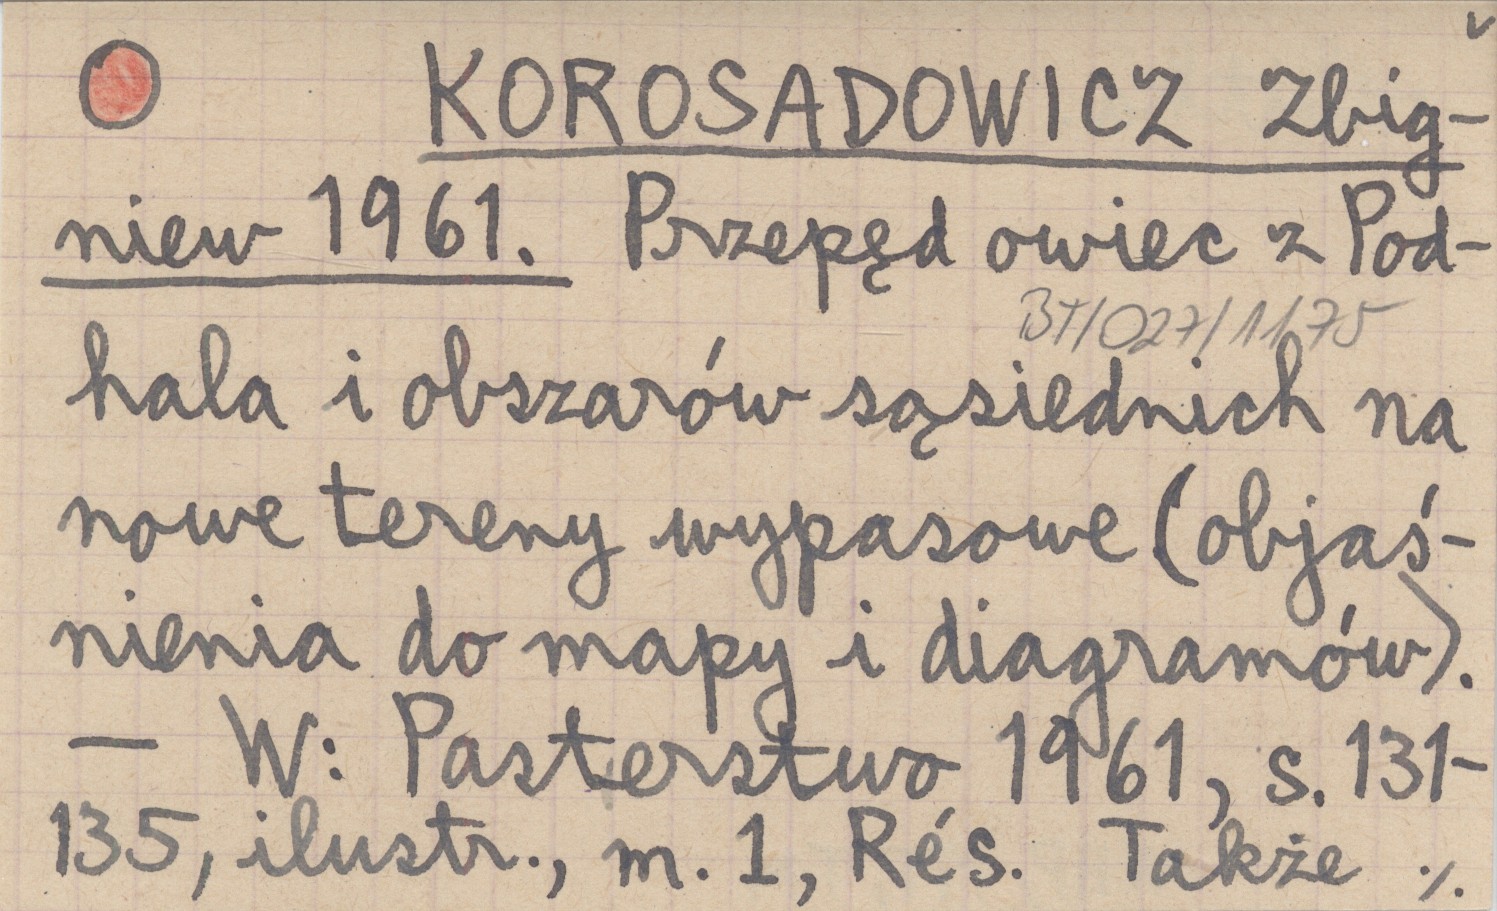 KOROSADOWICZ Zbig-
niew 1961. Przepęd owiec z Pod-
BT/027/11/75
hala i obszarów sąsiednich na
nowe tereny wypasowe (objaś-
nienia do mapy i diagramów).
— W: Pasterstwo 1961, s. 131-
135, ilustr., m. 1, Rés. Także ./.